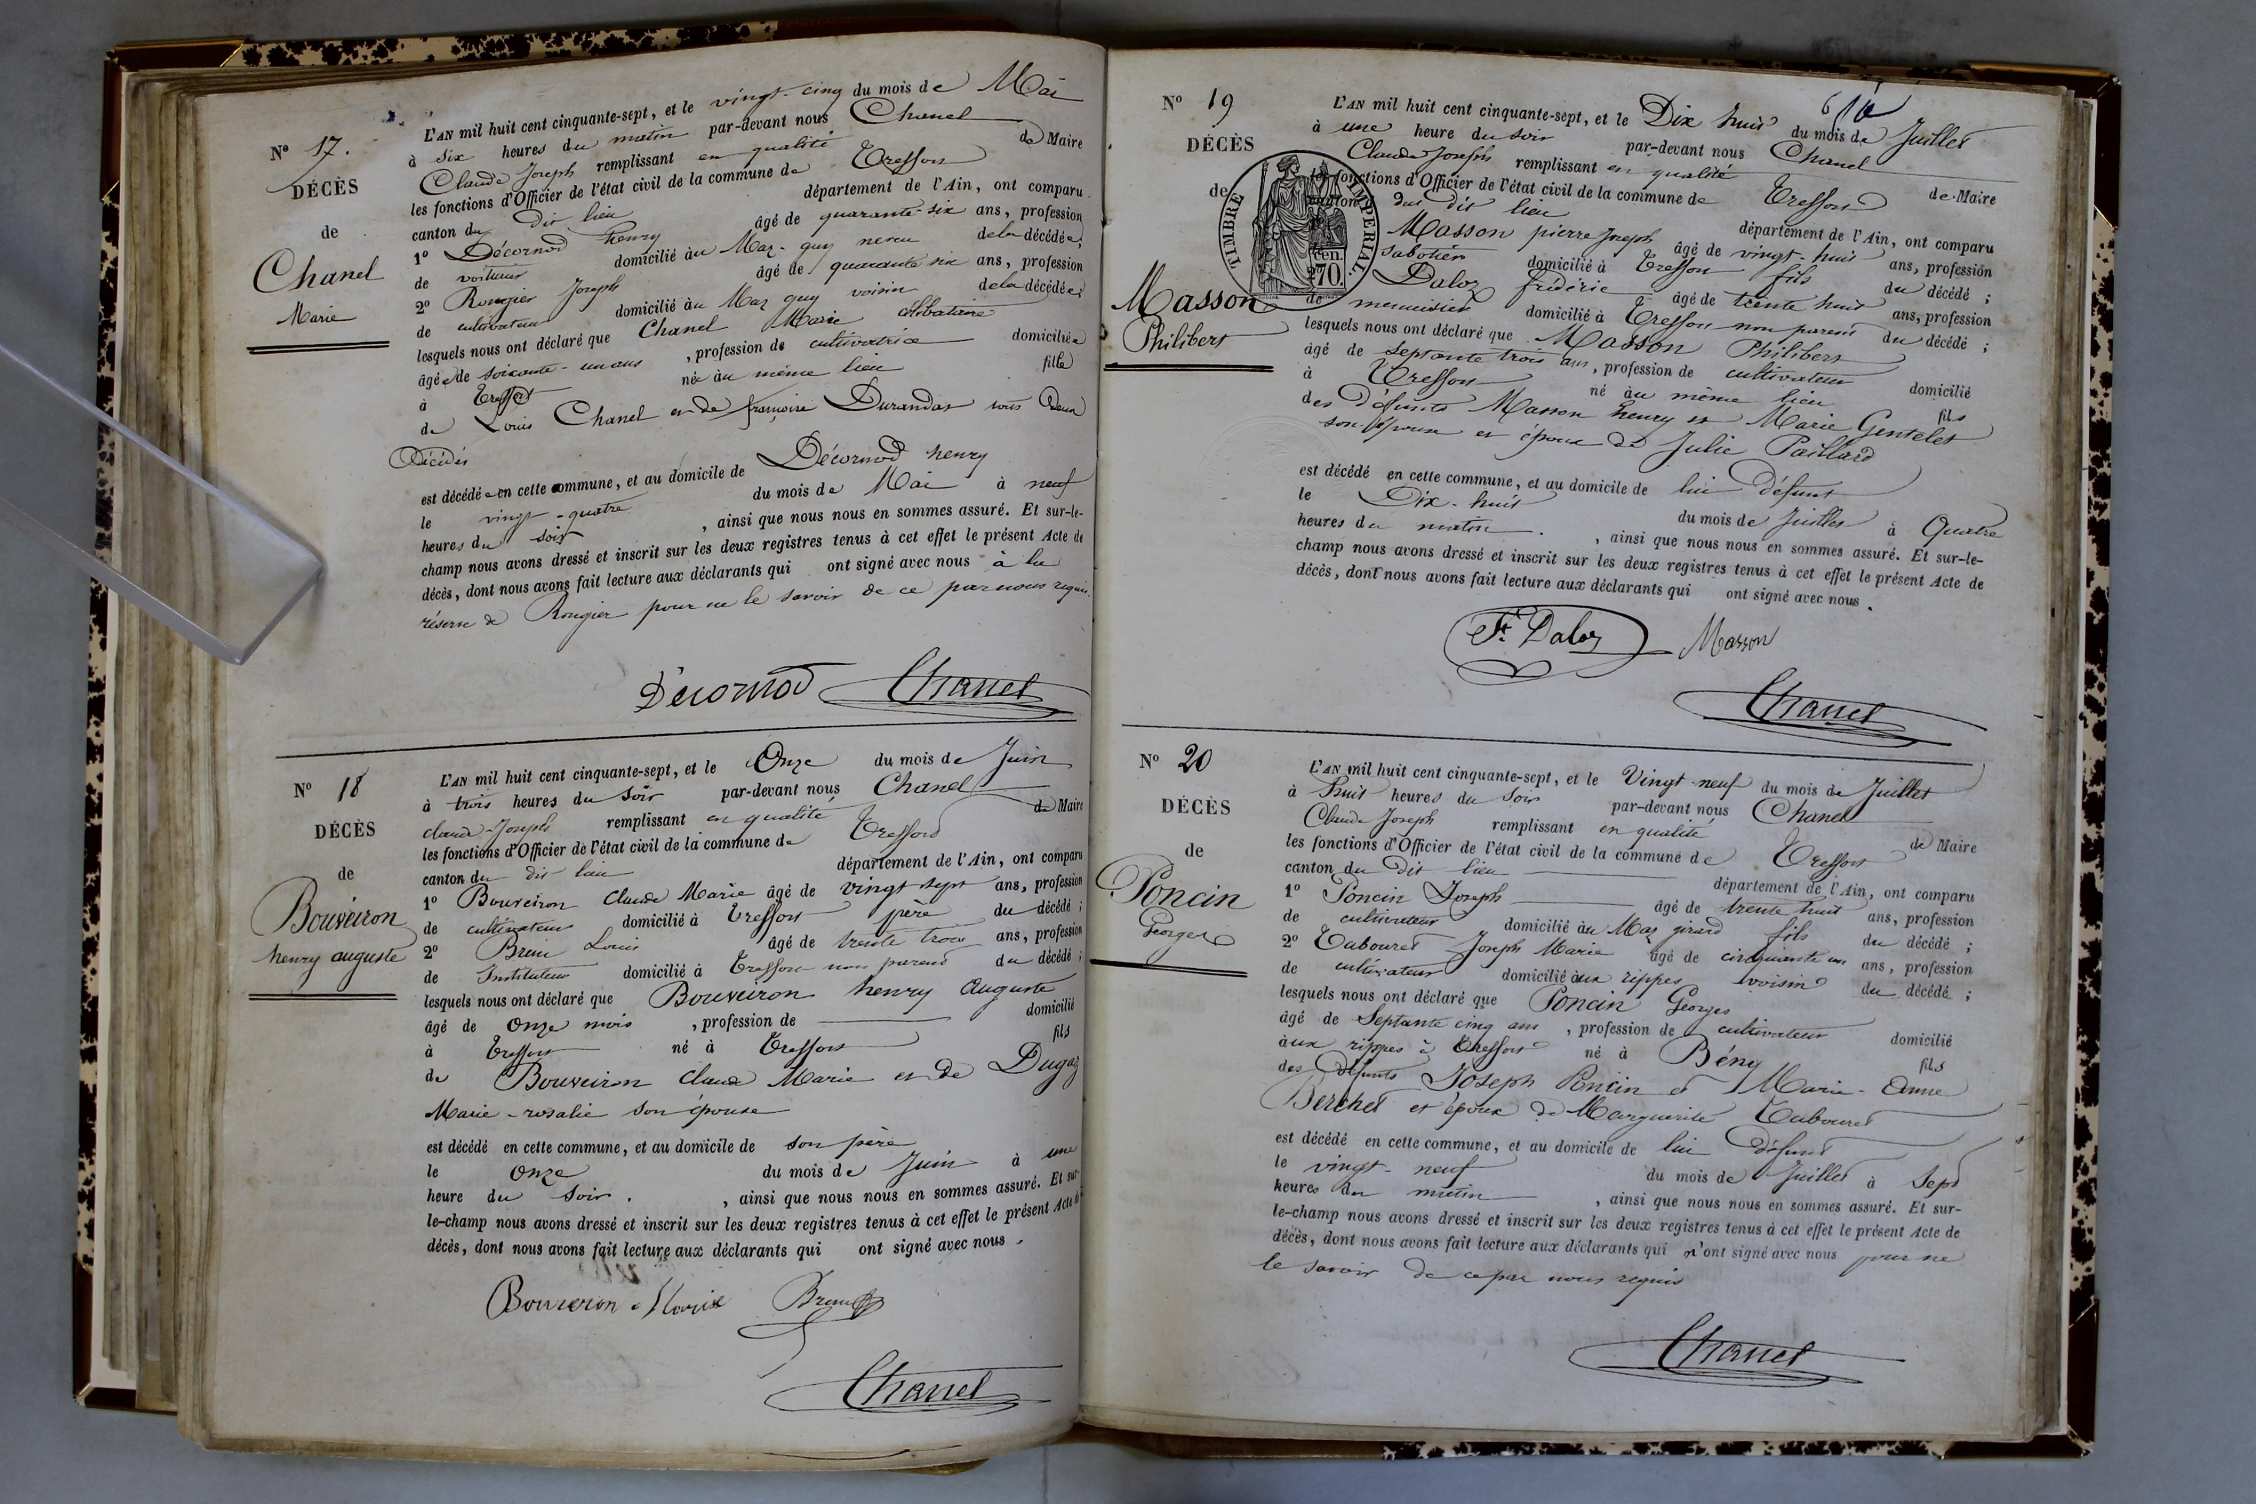 Nº 17.
DÉCÈS
de
Chanel
Marie
L'AN mil huit cent cinquante-sept, et le vingt-cinq du mois de Mai
à six heures du matin par-devant nous Chanel
Claude Joseph remplissant en qualité de Maire
les fonctions d'Officier de l'état civil de la commune de Treffort
canton du dit lieu département de l'Ain, ont comparu
1º Décornod henry âgé de quarante-six ans, profession
de voiturier domicilié au Maz-guy neveu de la décédée;
2º Rougier Joseph âgé de quarante six ans, profession
de cultivateur domicilié au Maz guy voisin de la décédée;
lesquels nous ont déclaré que Chanel Marie célibataire
âgée de soixante-un ans , profession de cultivatrice domiciliée
à Treffort née au même lieu fille
de Louis Chanel et de françoise Durandat tous Deux
Décédés
est décédée en cette commune, et au domicile de Décornod henry
le vingt-quatre du mois de Mai à neuf
heures du soir , ainsi que nous nous en sommes assuré. Et sur-le-
champ nous avons dressé et inscrit sur les deux registres tenus à cet effet le présent Acte de
décès, dont nous avons fait lecture aux déclarants qui ont signé avec nous à la
réserve de Rougier pour ne le savoir de ce par nous requis.
Décornod Chanel
Nº 18
DÉCÈS
de
Bouveiron
henry auguste
L'AN mil huit cent cinquante-sept, et le Onze du mois de Juin
à trois heures du soir par-devant nous Chanel
claude-Joseph remplissant en qualité de Maire
les fonctions d'Officier de l'état civil de la commune de Treffort
canton du dit lieu département de l'Ain, ont comparu
1º Bouveiron Claude Marie âgé de vingt sept ans, profession
de cultivateur domicilié à Treffort père du décédé;
2º Brun Louis âgé de trente trois ans, profession
de Instituteur domicilié à Treffort non parent du décédé;
lesquels nous ont déclaré que Bouveiron henry Auguste
âgé de onze mois , profession de domicilié
à Treffort né à Treffort fils
de Bouveiron Claude Marie et de Dugaz
Marie-rosalie son épouse
est décédé en cette commune, et au domicile de son père
le onze du mois de Juin à une
heure du soir. , ainsi que nous nous en sommes assuré. Et sur-
le-champ nous avons dressé et inscrit sur les deux registres tenus à cet effet le présent Acte de
décès, dont nous avons fait lecture aux déclarants qui ont signé avec nous.
Bouveron Brun
Chanel
Nº 19
DÉCÈS
de
TIMBRE IMPÉRIAL.
70.
Masson
Philibert
L'AN mil huit cent cinquante-sept, et le Dix huit du mois de Juillet
à une heure du soir par-devant nous Chanel
Claude Joseph remplissant en qualité de Maire
les fonctions d'Officier de l'état civil de la commune de Treffort
canton du dit lieu département de l'Ain, ont comparu
Masson pierre Joseph âgé de vingt-huit ans, profession
sabotier domicilié à Treffort fils du décédé;
Daloz frédéric âgé de trente huit ans, profession
de menuisier domicilié à Treffort non parent du décédé;
lesquels nous ont déclaré que Masson Philibert
âgé de septante trois ans, profession de cultivateur domicilié
à Treffort né au même lieu fils
des défunts Masson henry et Marie Gentelet
son épouse et époux de Julie Paillard
est décédé en cette commune, et au domicile de lui défunt
le Dix-huit du mois de Juillet à Quatre
heures du matin. , ainsi que nous nous en sommes assuré. Et sur-le-
champ nous avons dressé et inscrit sur les deux registres tenus à cet effet le présent Acte de
décès, dont nous avons fait lecture aux déclarants qui ont signé avec nous.
Fc. Daloz Masson
Chanel
Nº 20
DÉCÈS
de
Poncin
Georges
L'AN mil huit cent cinquante-sept, et le Vingt-neuf du mois de Juillet
à huit heures du soir par-devant nous Chanel
Claude Joseph remplissant en qualité de Maire
les fonctions d'Officier de l'état civil de la commune de Treffort
canton du Dit lieu département de l'Ain, ont comparu
1º Poncin Joseph âgé de trente huit ans, profession
de cultivateur domicilié au Maz girard fils du décédé;
2º Tabouret Joseph Marie âgé de cinquante un ans, profession
de cultivateur domicilié aux rippes voisin du décédé;
lesquels nous ont déclaré que Poncin Georges
âgé de Septante cinq ans , profession de cultivateur domicilié
aux rippes à Treffort né à Bény fils
des défunts Joseph Poncin et Marie-Anne
Berchet et époux de Marguerite Tabouret
est décédé en cette commune, et au domicile de lui défunt
le vingt-neuf du mois de Juillet à sept
heures du matin , ainsi que nous nous en sommes assuré. Et sur-
le-champ nous avons dressé et inscrit sur les deux registres tenus à cet effet le présent Acte de
décès, dont nous avons fait lecture aux déclarants qui n'ont signé avec nous pour ne
le savoir de ce par nous requis
Chanel